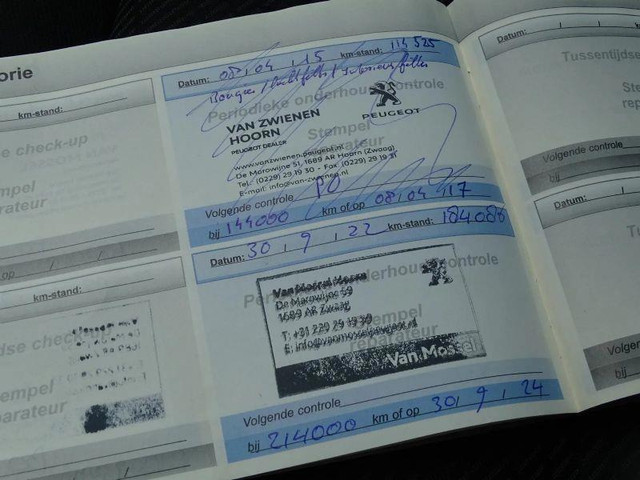 orie
km-stand:
e check-up
empel
parateur
op / /
km-stand:
dse check
empel
parateur
Datum: 08, 04, 15 km-stand: 114 525
Periodieke onderhoudcontrole
VAN ZWIENEN
HOORN
PEUGEOT DEALER
PEUGEOT
Stempel
www.vanzwienen-peugeot.nl
De Marowijne 51, 1689 AR Hoorn (Zwaag)
Tel.: (0229) 29 19 30 - Fax (0229) 29 19 31
E-mail: info@van-zwienen.nl
Volgende controle
bij 144000 km of op 08, 04, 17
Datum: 30, 9, 22 km-stand: 184086
Periodieke onderhoudcontrole
Van Mossel Hoorn
De Marowijne 59
1689 AR Zwaag
Stempel
reparateur
Van Mossel
Volgende controle
bij 214000 km of op 30, 9, 24
Datum: / /
Tussentijdse
Ste
repa
Volgende controle
bij
Datum:
Tussen
S
re
Volgende
bij